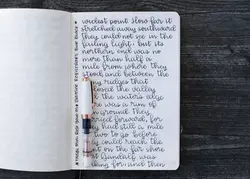 widest point. How far it
stretched away southward
they could not see in the
failing light: but its
northern end was no
more than half a
mile from where they
stood, and between the
ridges that
the valley
the water's edge
was a rim of
ground.
They
forward, for
had still a mile
two to go before
could reach the
on the far shore
Gandalf was
for; and then